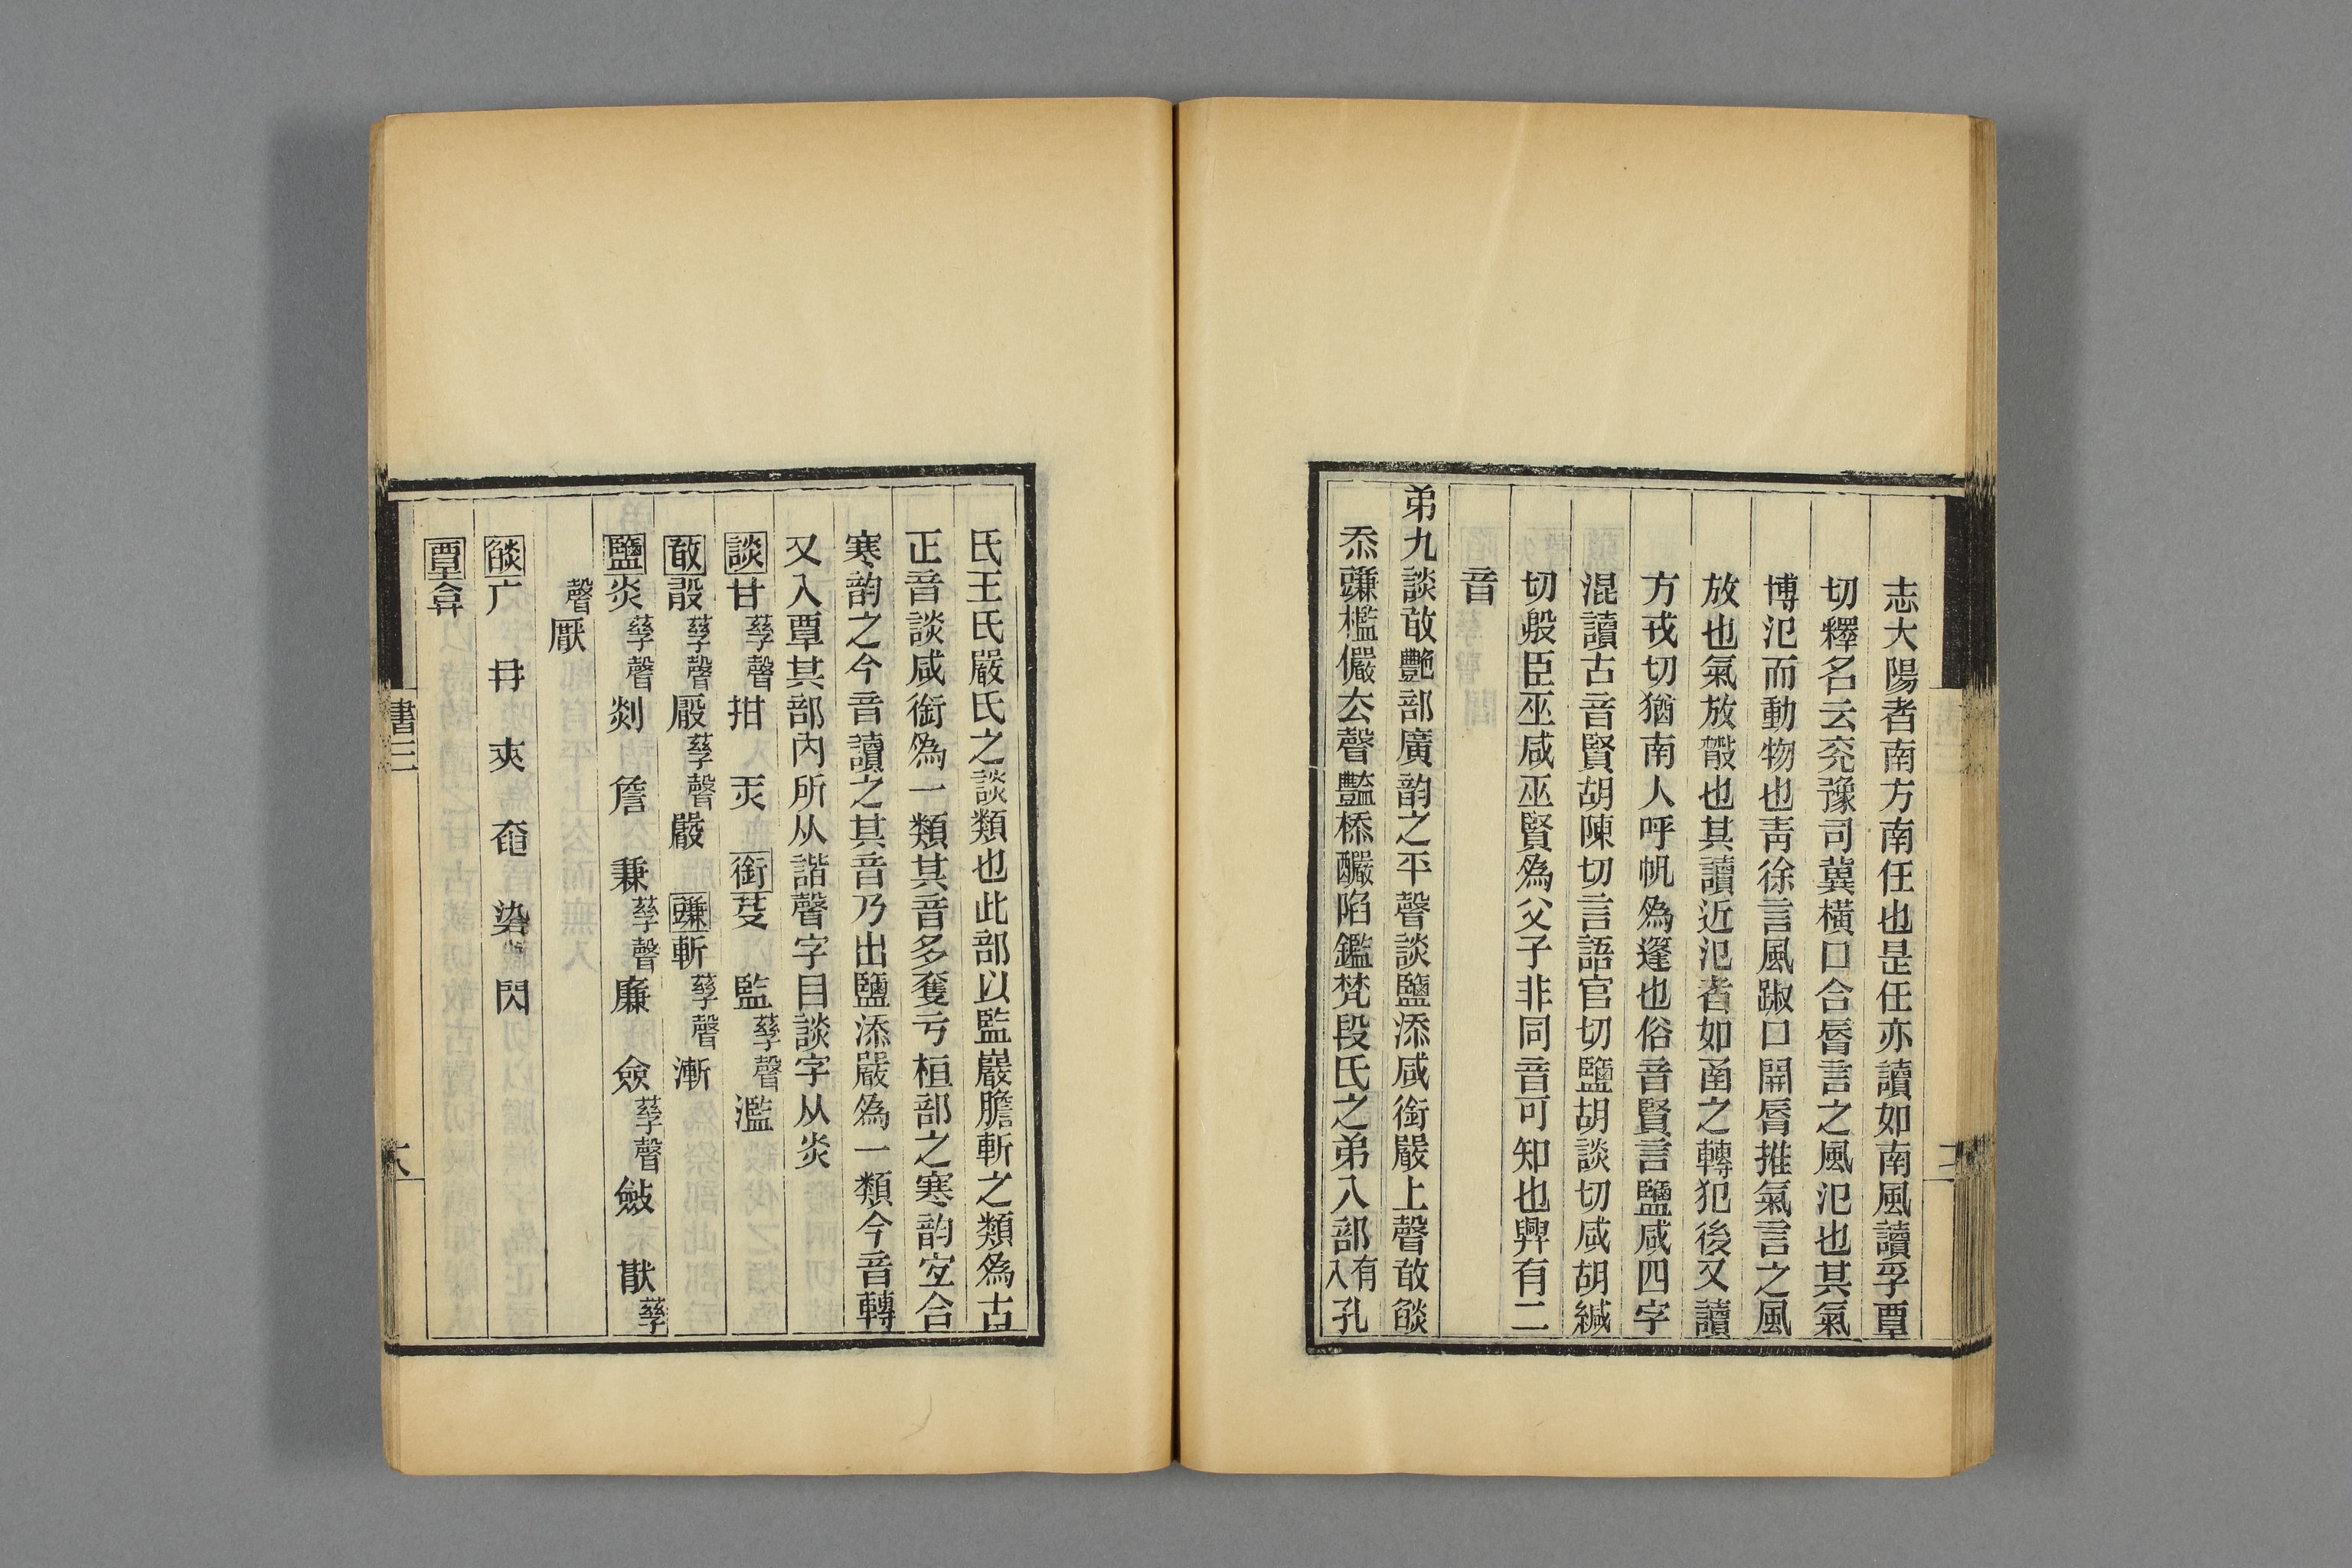 志大陽者南方南任也是任亦讀如南風讀孚覃
切釋名云兖豫司冀橫口合脣言之風氾也其氣
博氾而動物也靑徐言風踧口開脣推氣言之風
放也氣放散也其讀近氾者如函之轉犯後又讀
方戎切猶南人呼帆爲篷也俗音賢言鹽咸四字
混讀古音賢胡陳切言語官切鹽胡談切咸胡緘
切殷臣巫咸巫賢爲父子非同音可知也興有二
音
弟九談敢豔部廣韵之平聲談鹽添咸銜嚴上聲敢㷔
忝豏檻儼去聲豔㮇釅陷鑑梵段氏之弟八部有入孔
氏王氏嚴氏之談類也此部以監巖膽斬之類爲古
正音談咸銜爲一類其音多䧳亏桓部之寒韵宐合
寒韵之今音讀之其音乃出鹽添嚴爲一類今音轉
又入覃其部內所从諧聲字目談字从炎
談甘孳聲拑 㶣 銜𦥼 監孳聲濫
敢㲉孳聲厰孳聲嚴 豏斬孳聲漸
鹽炎孳聲剡 詹 兼孳聲廉 僉孳聲斂 猒孳
聲厭
㷔广 冄 㚒 奄 染 閃
覃弇
書三